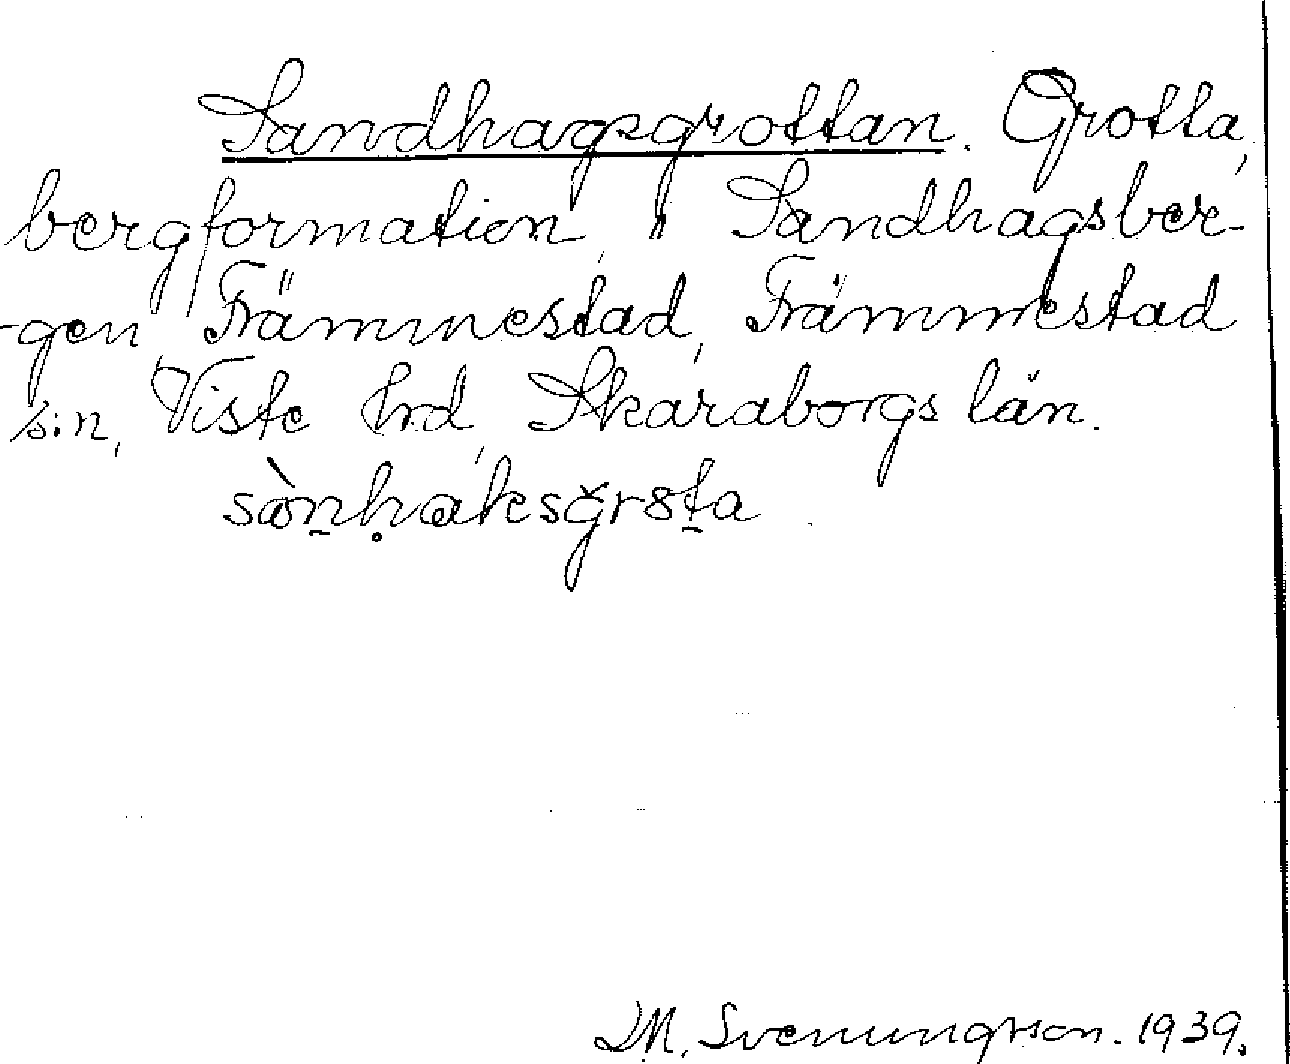 Sandhagsgrottan. Grotta,
bergformation, i Sandhagsber-
-gen, Främmestad, Främmestad
s:n, Viste hrd, Skaraborgs län.
M. Svenungsson. 1939.